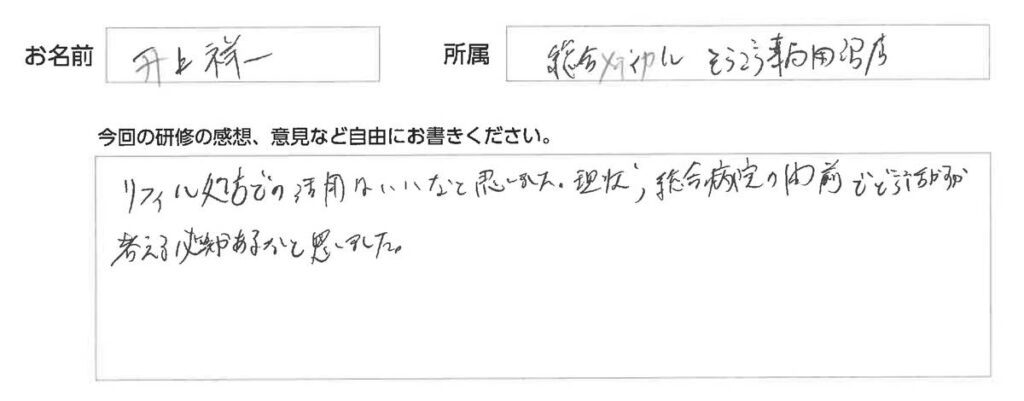 お名前 井上祥一 所属 総合メディカル そうごう薬局田沼店
今回の研修の感想、意見など自由にお書きください。
リフィル処方での活用はいいなと思いました。現状、総合病院の門前でどう活かすか
考える必要があるかなと思いました。